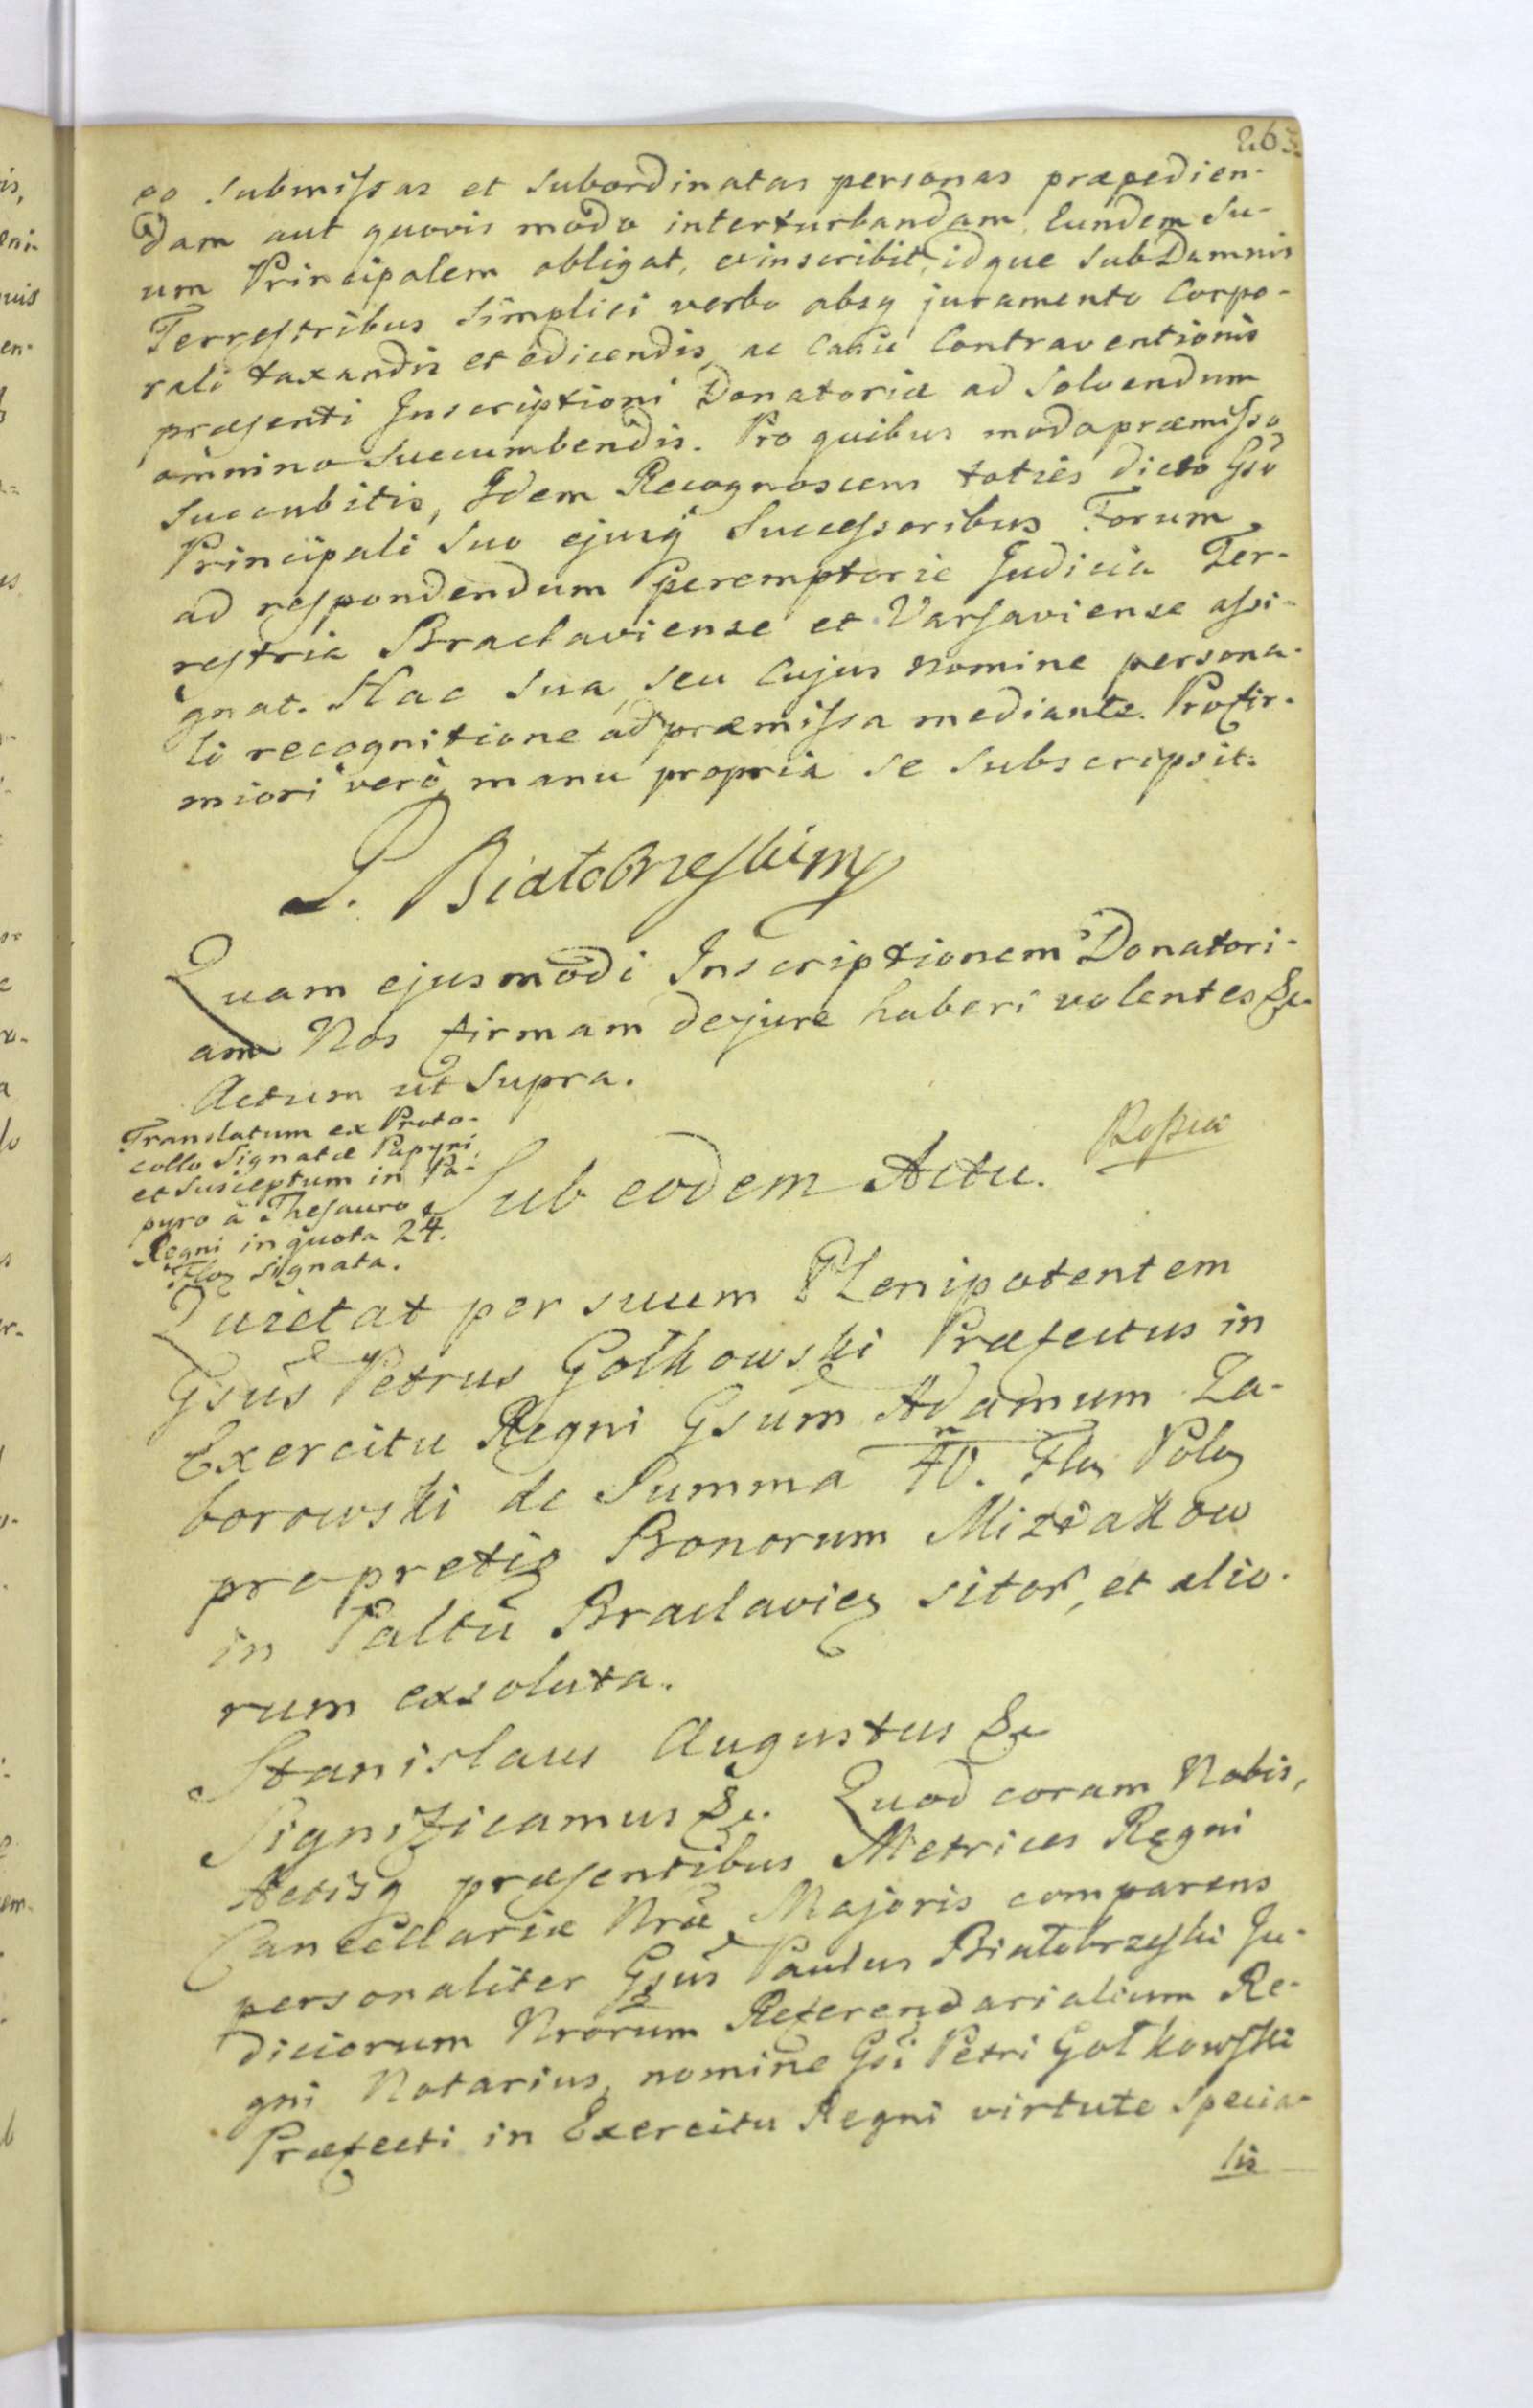 263
eo submissas et subordinatas personas præpedien-
dam aut quovis modo interturbandam, Eundem su-
um Principalem obligat, et inscribit, idque sub Damnis
Terrestribus simplici verbo absq juramento Corpo-
rali taxandis et edicendis, ac casu Contraventionis
præsenti Inscriptioni Donatoriæ ad solvendum
omnino succumbendis. Pro quibus modo præmisso
succubitis, Idem Recognoscens toties dicto Gso
Principali suo ejusq Successoribus Forum
ad respondendum peremptorie Judicia Ter-
restria Braclaviense et Varsaviense assi-
gnat. Hac sua, seu cujus nomine persona-
li recognitione ad præmissa mediante. Profir-
miori verò manu propria se subscripsit.
P. Białobrzeski mp
Quam ejusmodi Inscriptionem Donatori-
am Nos firmam dejure haberi volentes &c.
Actum ut supra.
Translatum ex Proto-
collo Signatæ Papyri,
et susceptum in Pa-
pyro à Thesauro
Regni in quota 24.
Flor signata.
Sub eodem Actu.
Quietat per suum Plenipotentem
Gsus Petrus Gołkowski Præfectus in
Exercitu Regni Gsum Adamum Za-
borowski de Summa 40. Flor Polon
pro pretio Bonorum Miziakow
in Paltu Braclavien sitor, et alio-
rum exsoluta.
Stanislaus Augustus &c
Significamus &c. Quod coram Nobis,
Actisq præsentibus Metrices Regni
Cancellariæ Nræ Majoris comparens
personaliter Gsus Paulus Białobrzeski Ju-
diciorum Nrorum Referendarialium Re-
gni Notarius, nomine Gsi Petri Gołkowski
Præfecti in Exercitu Regni virtute specia-
lis